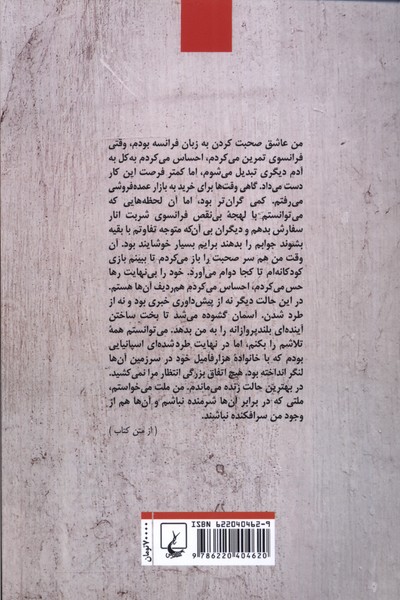 من عاشق صحبت کردن به زبان فرانسه بودم، وقتی
فرانسوی تمرین می‌کردم، احساس می‌کردم به‌کل به
آدم دیگری تبدیل می‌شوم، اما کمتر فرصت این کار
دست می‌داد. گاهی وقت‌ها برای خرید به بازار عمده‌فروشی
می‌رفتم. کمی گران‌تر بود، اما آن لحظه‌هایی که
می‌توانستم با لهجهٔ بی‌نقص فرانسوی شربت انار
سفارش بدهم و دیگران بی آن‌که متوجه تفاوتم با بقیه
بشوند جوابم را بدهند برایم بسیار خوشایند بود. آن
وقت من هم سر صحبت را باز می‌کردم تا ببینم بازی
کودکانه‌ام تا کجا دوام می‌آورد. خود را بی‌نهایت رها
حس می‌کردم، احساس می‌کردم هم‌ردیف آن‌ها هستم.
در این حالت دیگر نه از پیش‌داوری خبری بود و نه از
طرد شدن. آسمان گشوده می‌شد تا بخت ساختن
آینده‌ای بلندپروازانه را به من بدهد. می‌توانستم همهٔ
تلاشم را بکنم، اما در نهایت طردشده‌ای اسپانیایی
بودم که با خانوادهٔ هزارفامیل خود در سرزمین آن‌ها
لنگر انداخته بود. هیچ اتفاق بزرگی انتظار مرا نمی‌کشید.
در بهترین حالت زنده می‌ماندم. من ملت می‌خواستم،
ملتی که در برابر آن‌ها شرمنده نباشم و آن‌ها هم از
وجود من سرافکنده نباشند.
(از متن کتاب)
ISBN 622040462-9
9 786220 404620
۷۰۰۰۰ تومان